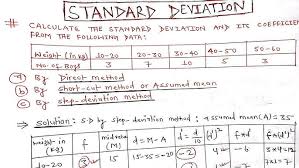 STANDARD DEVIATION
# CALCULATE THE STANDARD DEVIATION AND ITS COEFFICIENT
FROM THE FOLLOWING DATA:
Weight (in kg) 10-20 20-30 30-40 40-50 50-60
No. of Boys 3 7 10 5 3
a By Direct method
b By short-cut method or Assumed mean
c By step-deviation method
⇒ Solution: S.D by step-deviation method : assumed mean(A)=35
weight in (KG) f midvalue (M) d=M-A d'=d/10 (d')² fxd' f(d')²
10-20 3 15 15-35=-20 -2 4